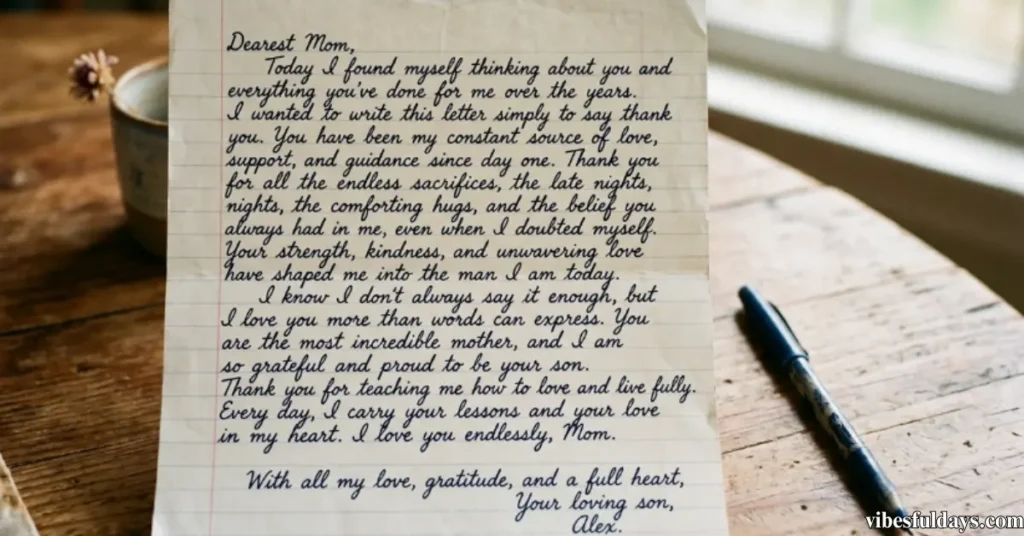 Dearest Mom,
Today I found myself thinking about you and
everything you've done for me over the years.
I wanted to write this letter simply to say thank
you. You have been my constant source of love,
support, and guidance since day one. Thank you
for all the endless sacrifices, the late nights,
nights, the comforting hugs, and the belief you
always had in me, even when I doubted myself.
Your strength, kindness, and unwavering love
have shaped me into the man I am today.
I know I don't always say it enough, but
I love you more than words can express. You
are the most incredible mother, and I am
so grateful and proud to be your son.
Thank you for teaching me how to love and live fully.
Every day, I carry your lessons and your love
in my heart. I love you endlessly, Mom.
With all my love, gratitude, and a full heart,
Your loving son,
Alex.
vibesfuldays.com